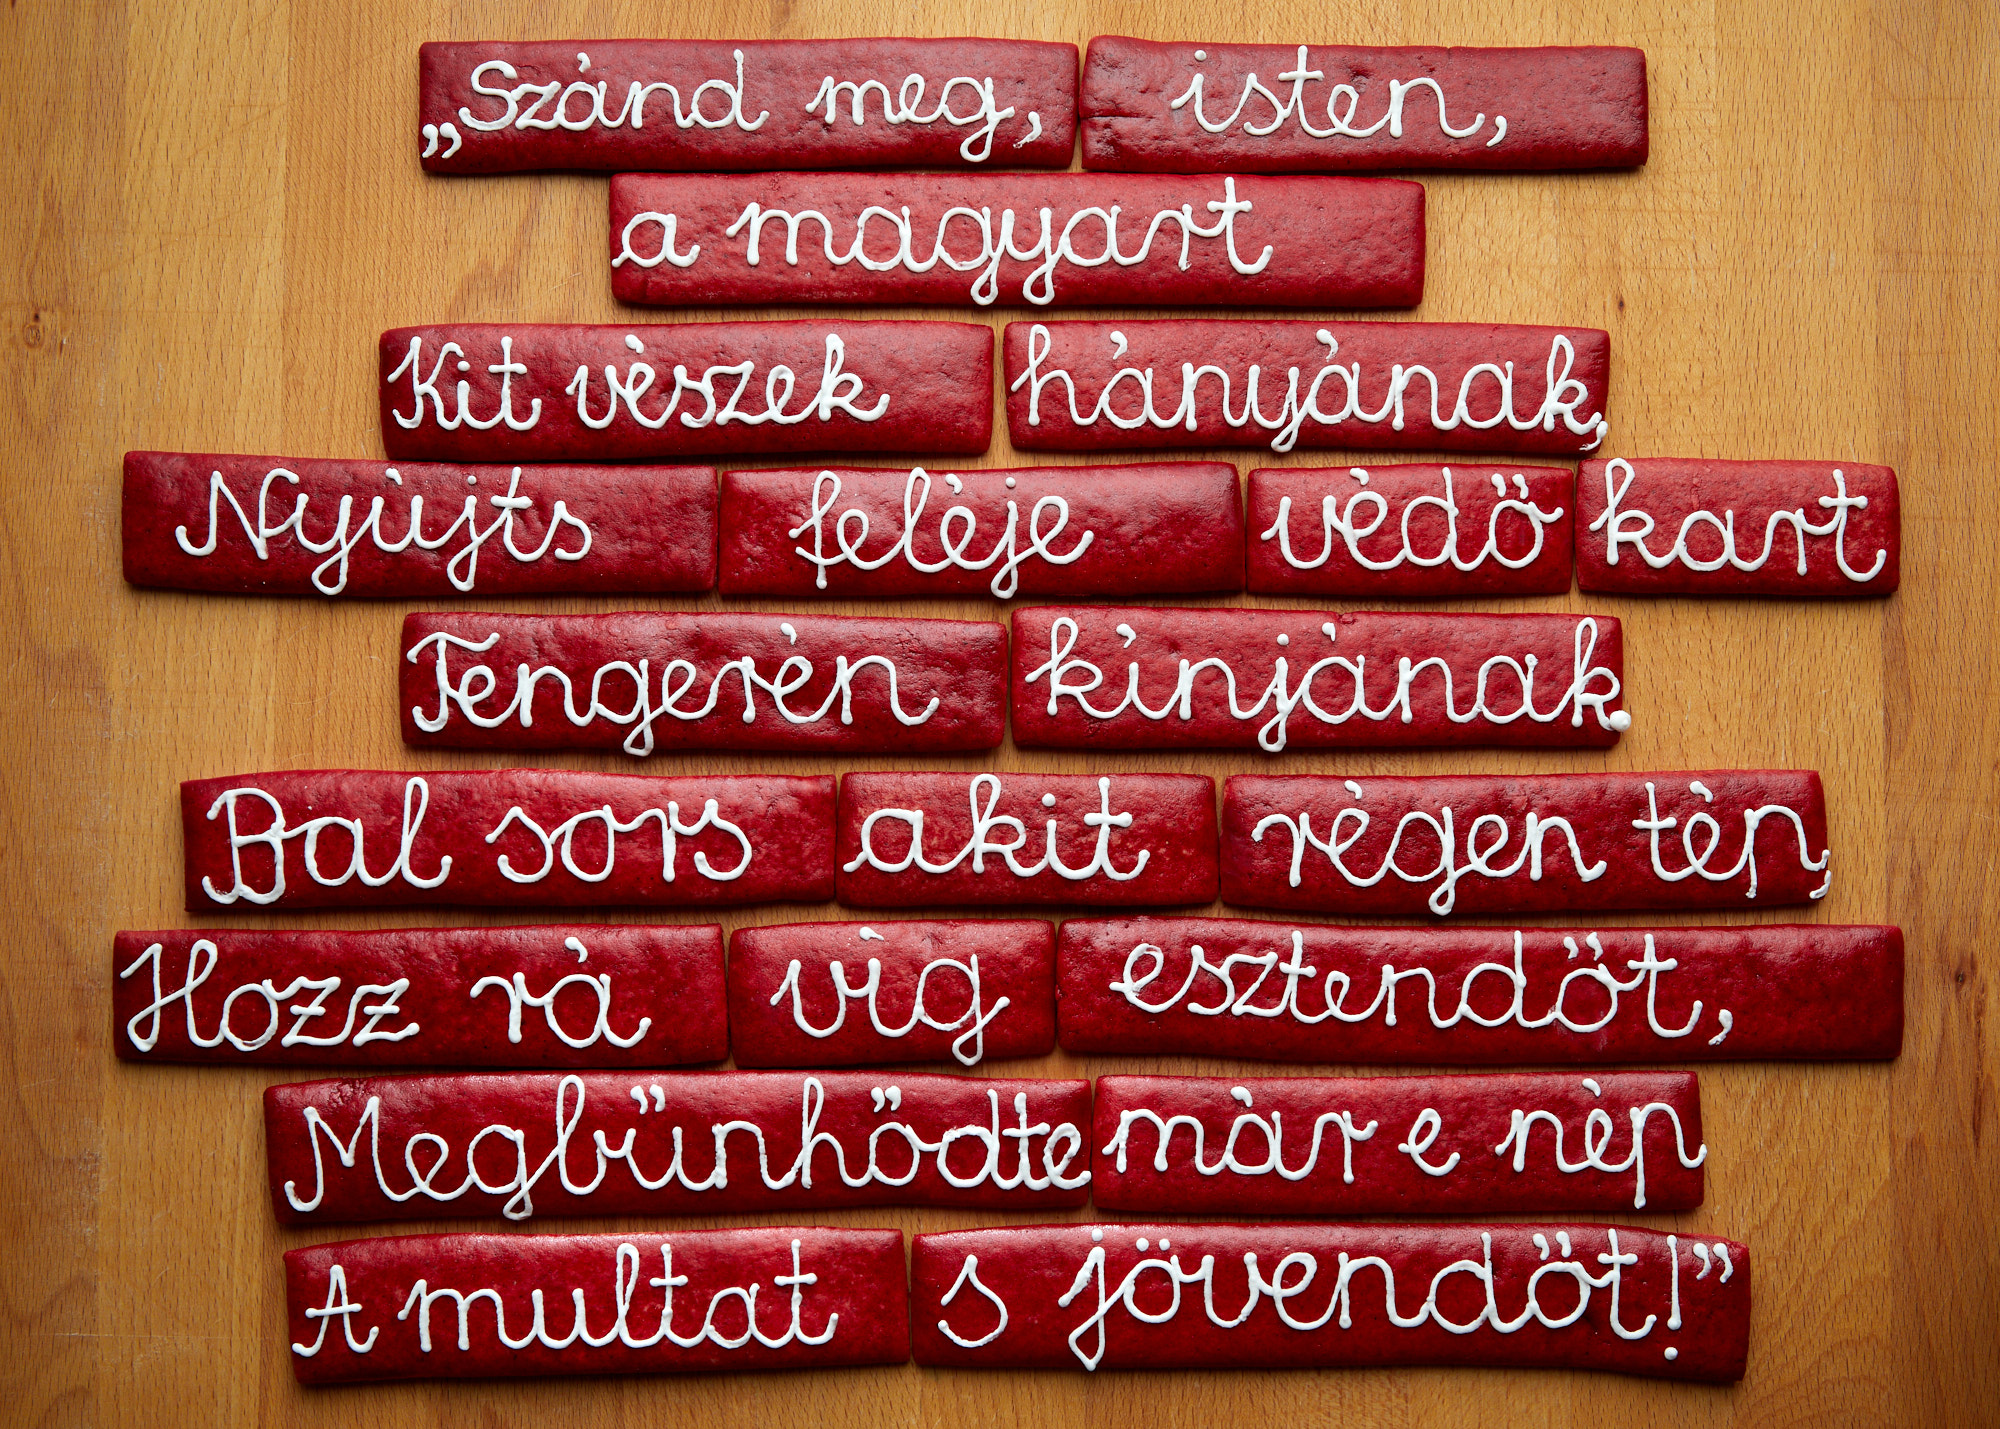 „Szánd meg, isten,
a magyart
Kit vészek hányának,
Nyújts feléje védő kart
Tengerén kínjának.
Bal sors akit régen tép,
Hozz rá víg esztendőt,
Megbűnhődte már e nép
A multat s jövendőt!”